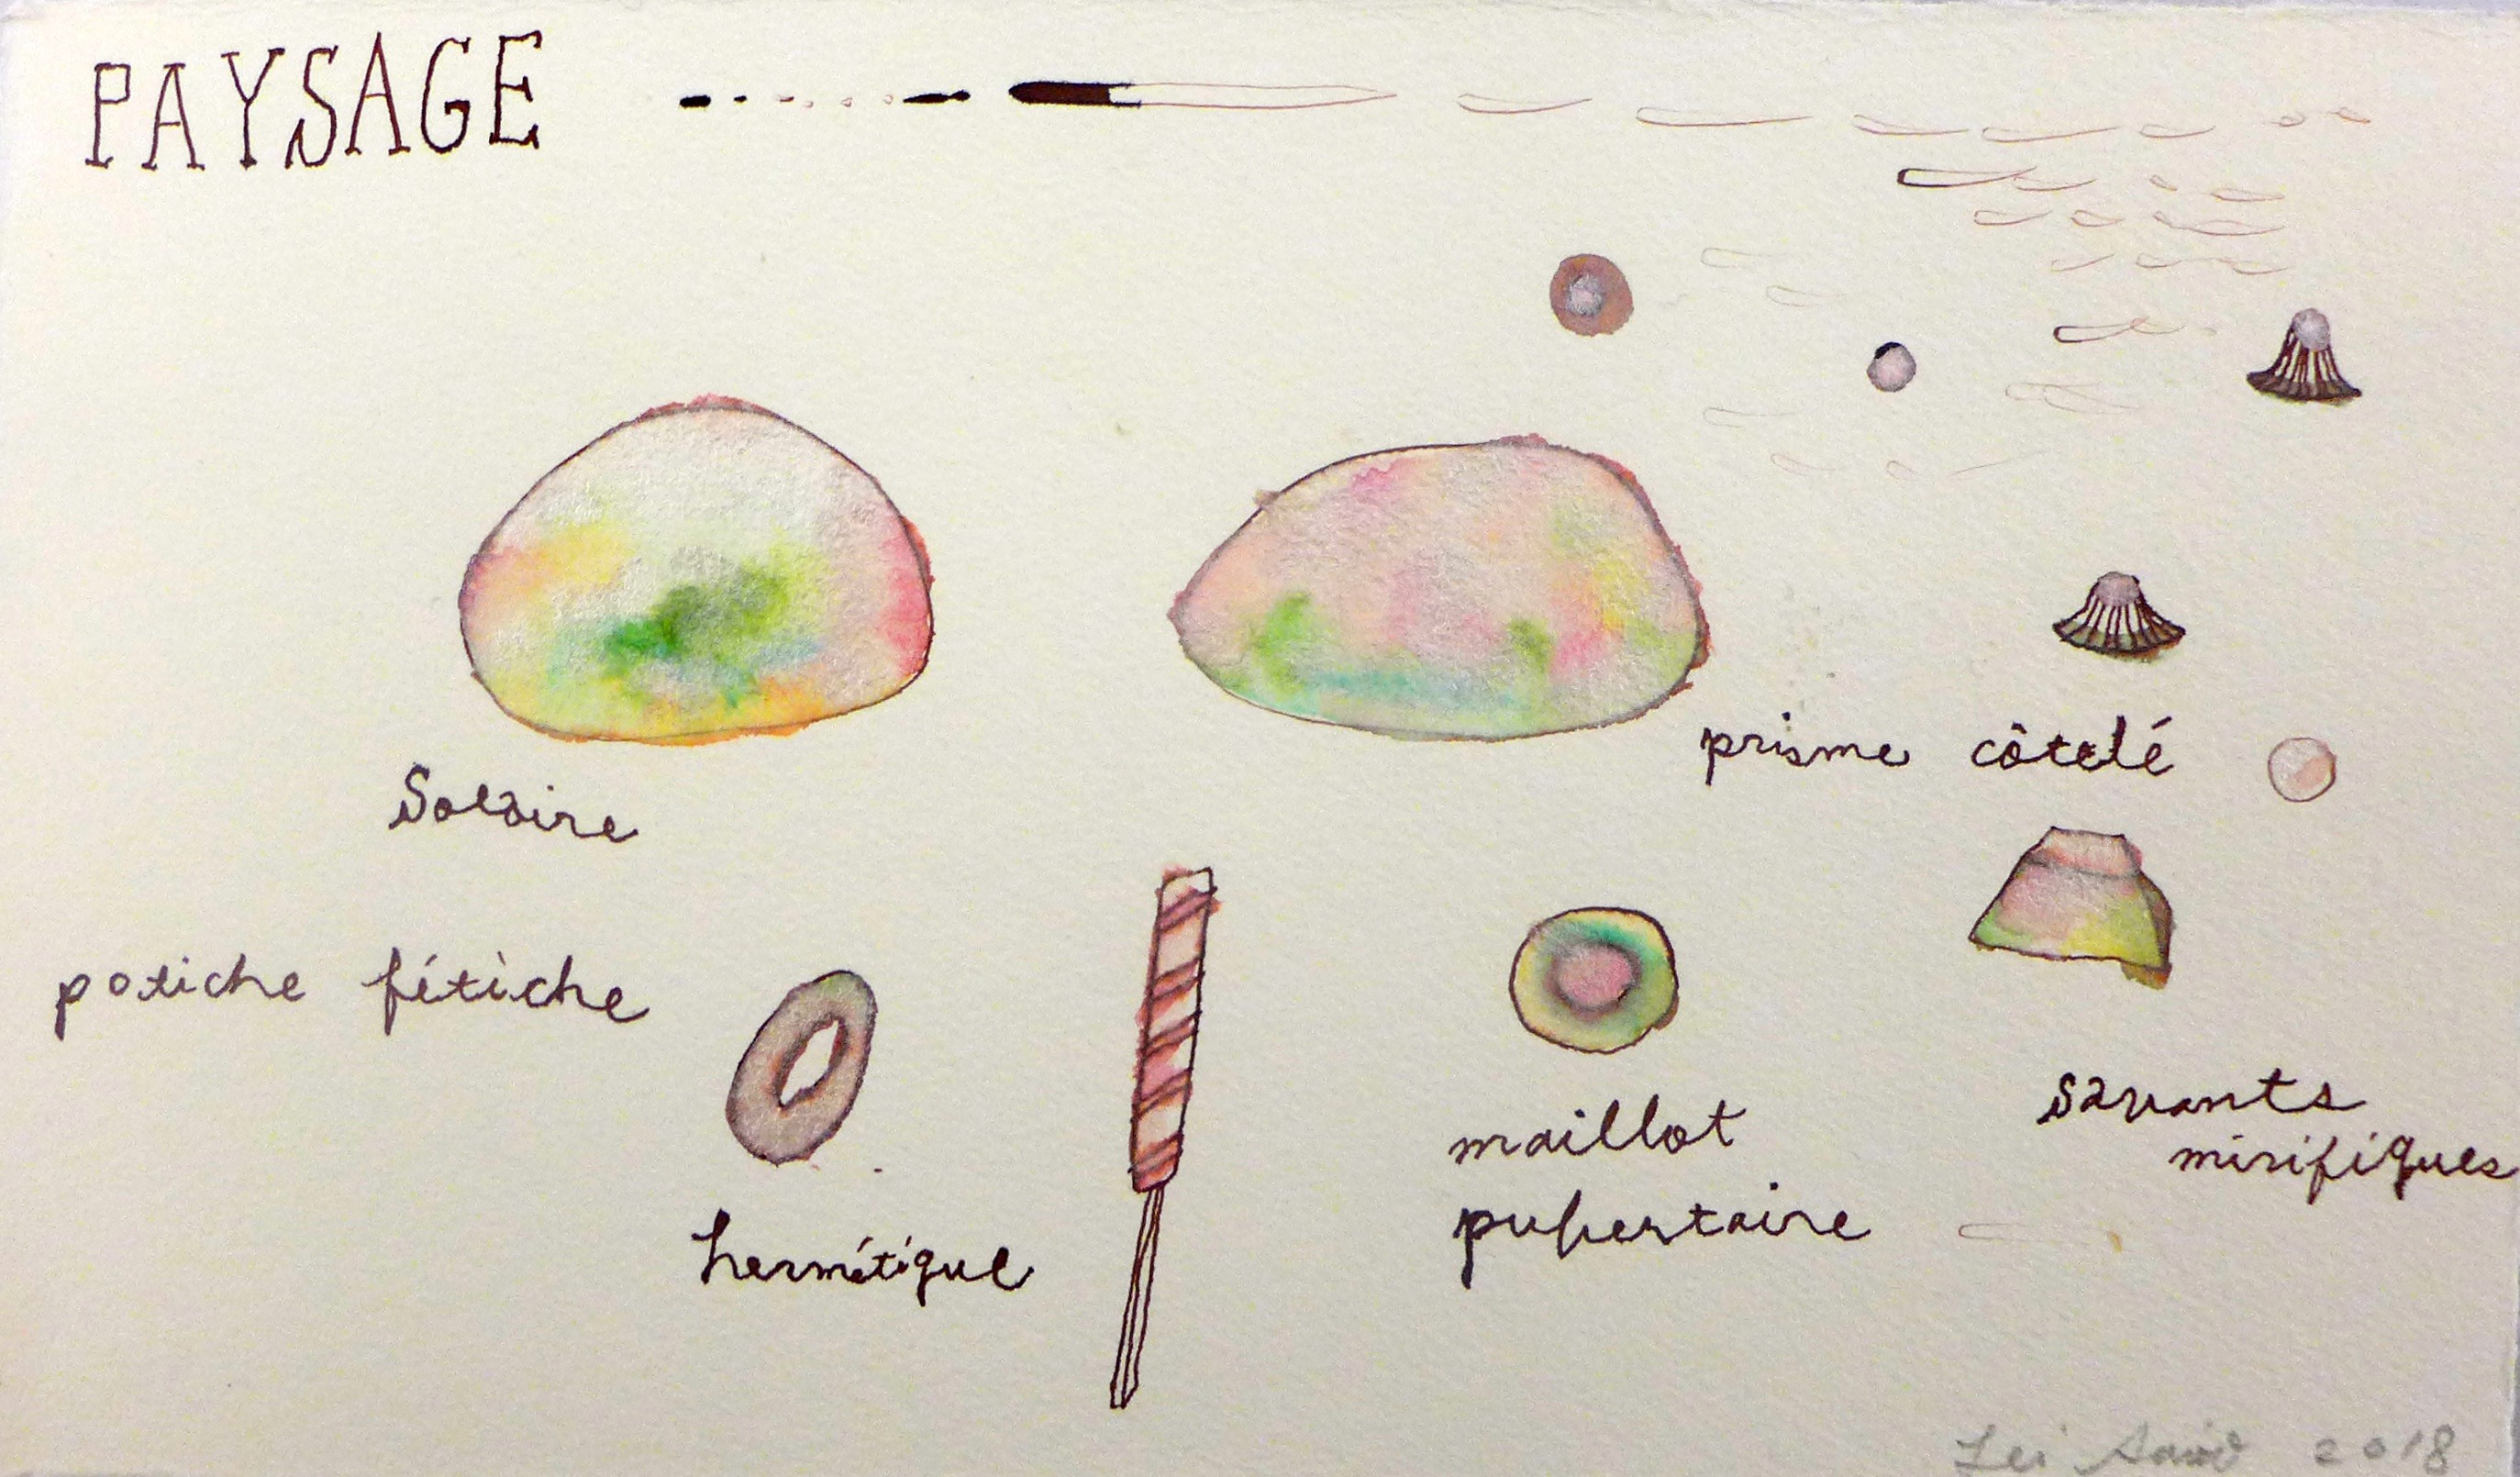 PAYSAGE
prisme côtelé
Solaire
potiche fétiche
hermétique
maillot
pubertaire
savants
mirifiques
2018